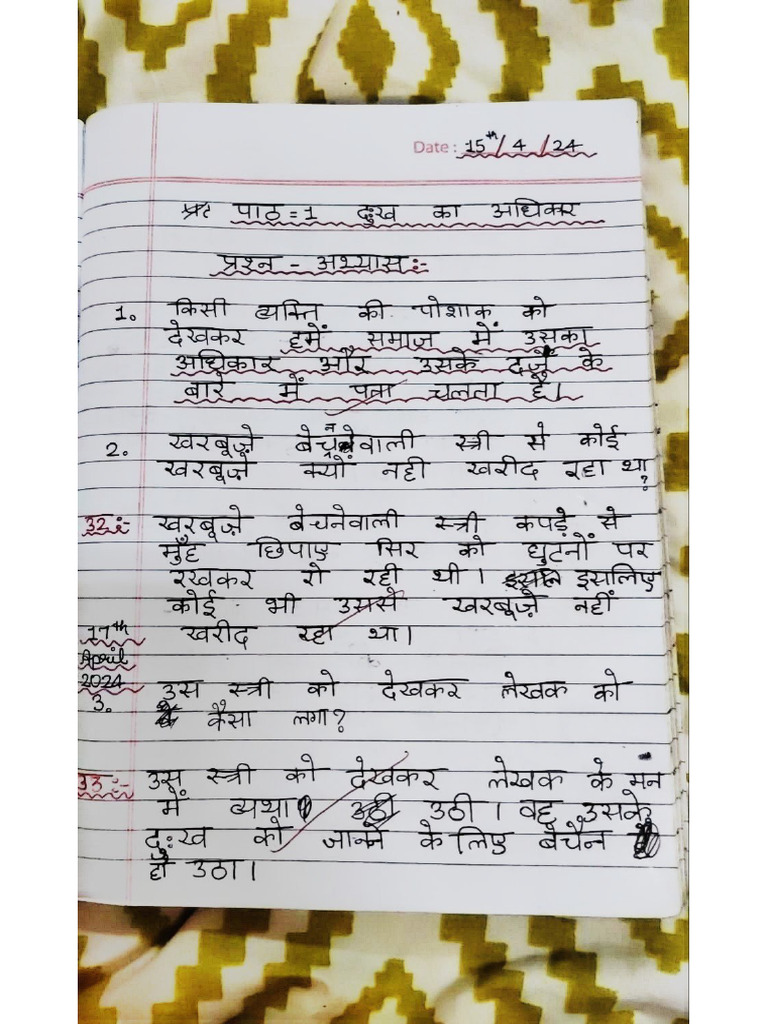 Date: 15th/4/24
पाठ=1 दुःख का अधिकार
प्रश्न - अभ्यास:-
1. किसी व्यक्ति की पोशाक को
देखकर हमें समाज में उसका
अधिकार और उसके दर्जे के
बारे में पता चलता है।
2. खरबूज़े बेचनेवाली स्त्री से कोई
खरबूज़े क्यों नही खरीद रहा था?
उ2:- खरबूज़े बेचनेवाली स्त्री कपड़े से
मुँह छिपाए सिर को घुटनों पर
रखकर रो रही थी। इसलिए
कोई भी उससे खरबूज़े नहीं
खरीद रहा था।
17th
April
2024
3. उस स्त्री को देखकर लेखक को
कैसा लगा?
उ3:- उस स्त्री को देखकर लेखक के मन
में व्यथा उठी। वह उसके
दुःख को जानने के लिए बेचैन
हो उठा।